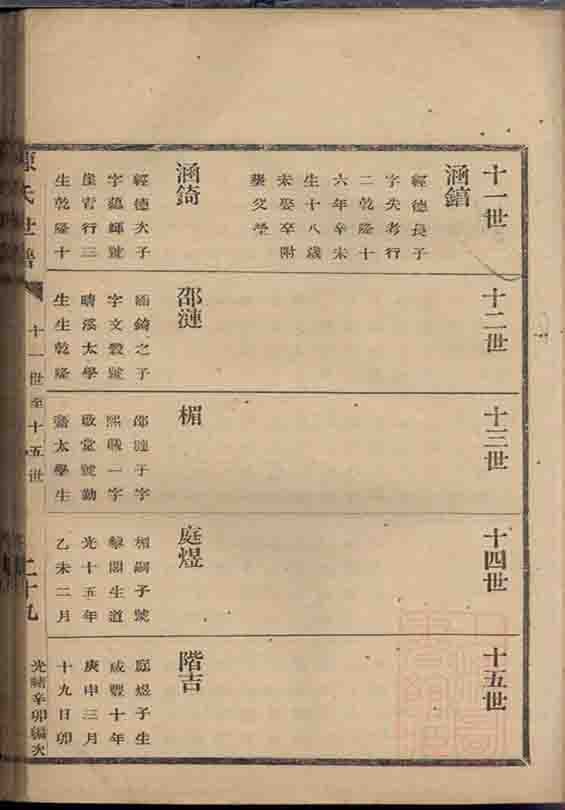 十一世
涵鐈
經德長子
字失考行
二乾隆十
六年辛未
生十八歲
未娶卒附
葬父塋
涵錡
經德次子
字蘊輝號
崖青行三
生乾隆十
十二世
邵漣
涵錡之子
字文穀號
晴溪太學
生生乾隆
十三世
楣
邵漣子字
熙戩一字
敬堂號勤
齋太學生
十四世
庭煜
楣嗣子號
黎閣生道
光十五年
乙未二月
十五世
階吉
庭煜子生
咸豐十年
庚申三月
十九日卯
氏世譜
十一世至十五世
二十九
光緒辛卯編次